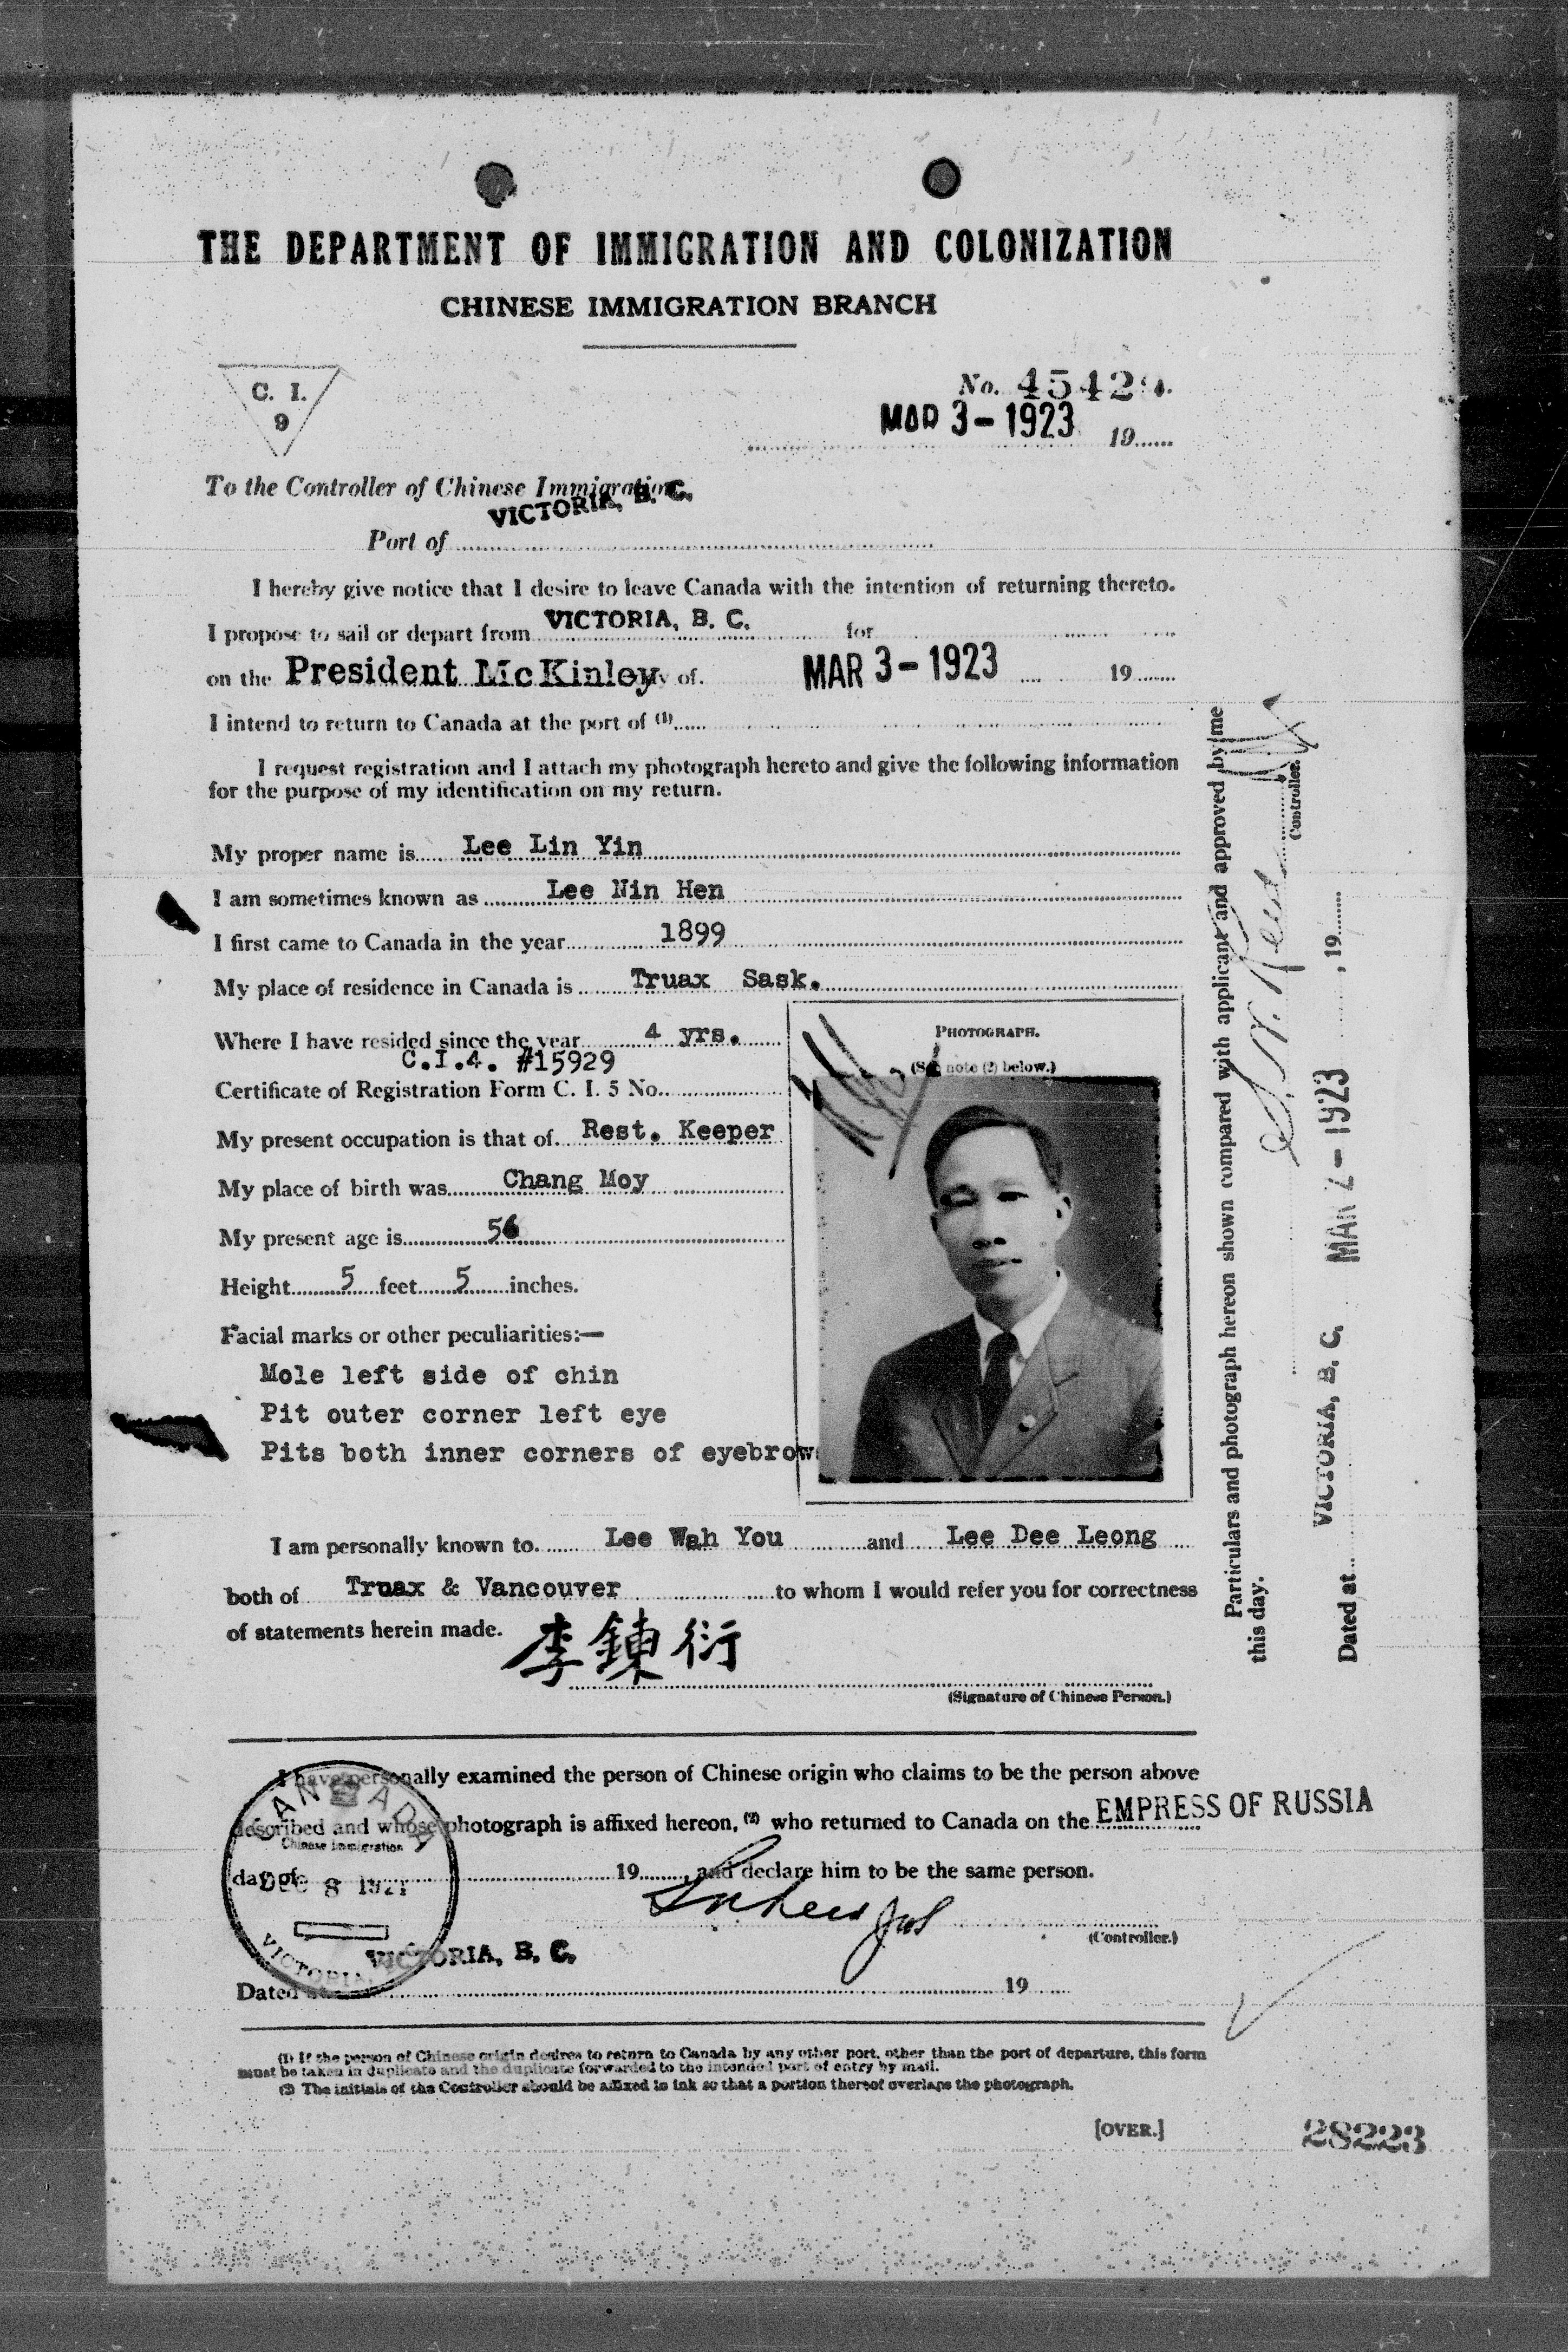 THE DEPARTMENT OF IMMIGRATION AND COLONIZATION
CHINESE IMMIGRATION BRANCH
C. I.
9
No. 4542
MAR 3 - 1923 19
To the Controller of Chinese Immigration
VICTORIA, B. C.
Port of
I hereby give notice that I desire to leave Canada with the intention of returning thereto.
I propose to sail or depart from VICTORIA, B. C. for
on the President McKinley day of MAR 3 - 1923 19
I intend to return to Canada at the port of (1)
I request registration and I attach my photograph hereto and give the following information
for the purpose of my identification on my return.
My proper name is Lee Lin Yin
I am sometimes known as Lee Nin Hen
I first came to Canada in the year 1899
My place of residence in Canada is Truax Sask.
Where I have resided since the year 4 yrs.
C.I.4. #15929
Certificate of Registration Form C. I. 5 No.
My present occupation is that of Rest. Keeper
My place of birth was Chang Moy
My present age is 56
Height 5 feet 5 inches.
Facial marks or other peculiarities:—
Mole left side of chin
Pit outer corner left eye
Pits both inner corners of eyebrows
PHOTOGRAPH.
(See note (2) below.)
I am personally known to Lee Wah You and Lee Dee Leong
both of Truax & Vancouver to whom I would refer you for correctness
of statements herein made.
李鍊衍
(Signature of Chinese Person.)
Particulars and photograph hereon shown compared with applicant and approved by me
this day.
Controller.
Dated at VICTORIA, B. C. MAR 2 - 1923, 19
I have personally examined the person of Chinese origin who claims to be the person above
described and whose photograph is affixed hereon, (2) who returned to Canada on the EMPRESS OF RUSSIA
day of 19 and declare him to be the same person.
(Controller.)
CANADA
Chinese Immigration
DEC 8 192
VICTORIA,
VICTORIA, B. C.
Dated at 19
(1) If the person of Chinese origin desires to return to Canada by any other port, other than the port of departure, this form
must be taken in duplicate and the duplicate forwarded to the intended port of entry by mail.
(2) The initials of the Controller should be affixed in ink so that a portion thereof overlaps the photograph.
[OVER.]
28223